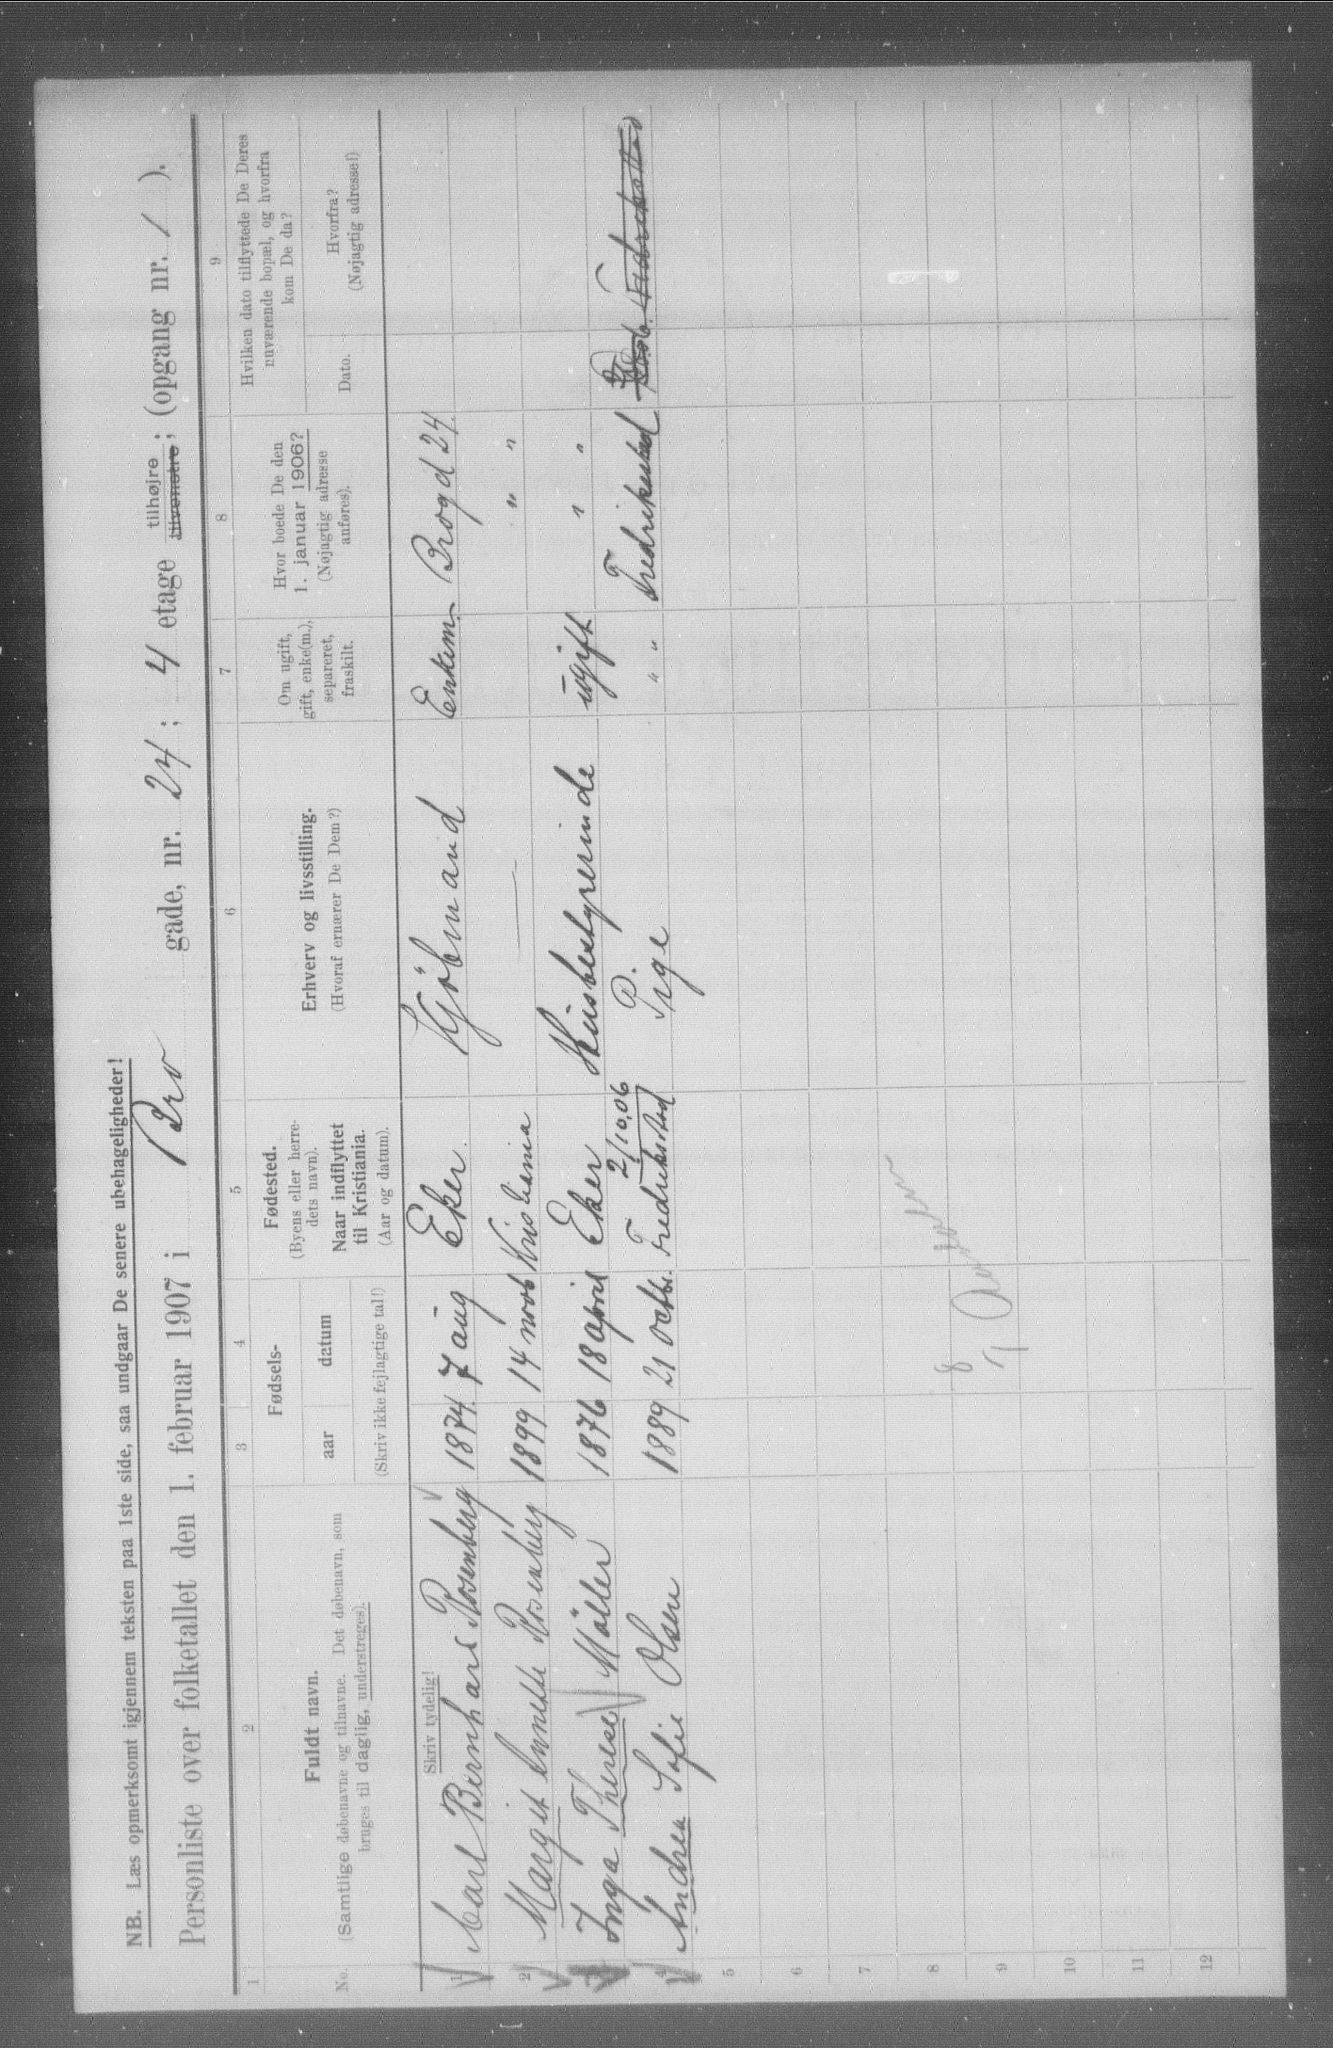 NB. Læs opmerksomt igjennem teksten paa 1ste side, saa undgaar De senere ubehageligheder!
Personliste over folketallet den 1. februar 1907 i Bro gade, nr. 24; 4 etage tilhøjre tilvenstre; (opgang nr. 1).
1 2 3 4 5 6 7 8 9
No.
Fuldt navn.
(Samtlige døbenavne og tilnavne. Det døbenavn, som
bruges til daglig, understreges).
Fødsels-
aar datum
(Skriv ikke fejlagtige tal!)
Fødested.
(Byens eller herre-
dets navn).
Naar indflyttet
til Kristiania.
(Aar og datum).
Erhverv og livsstilling.
(Hvoraf ernærer De Dem?)
Om ugift,
gift, enke(m.),
separeret,
fraskilt.
Hvor boede De den
1. januar 1906?
(Nøjagtig adresse
anføres).
Hvilken dato tilflyttede De Deres
nuværende bopæl, og hvorfra
kom De da?
Dato.
Hvorfra?
(Nøjagtig adresse!)
Skriv tydelig!
1 Carl Bernhard Rosenberg 1874 7 aug Eker. Kjøbmand Enkem. Brogd 24
2 Margit Annette Rosenberg 1899 14 novb Kristiania — " "
3 Inga Therese Møller 1876 18 april Eker Husbestyrerinde ugift " "
2/10.06
4 Andrea Sofie Olsen 1889 21 octbr. Fredrikstad P. Pige " " Fredrikstad Fredrikstad
5
6
7
8
9
10
11
12
8/7